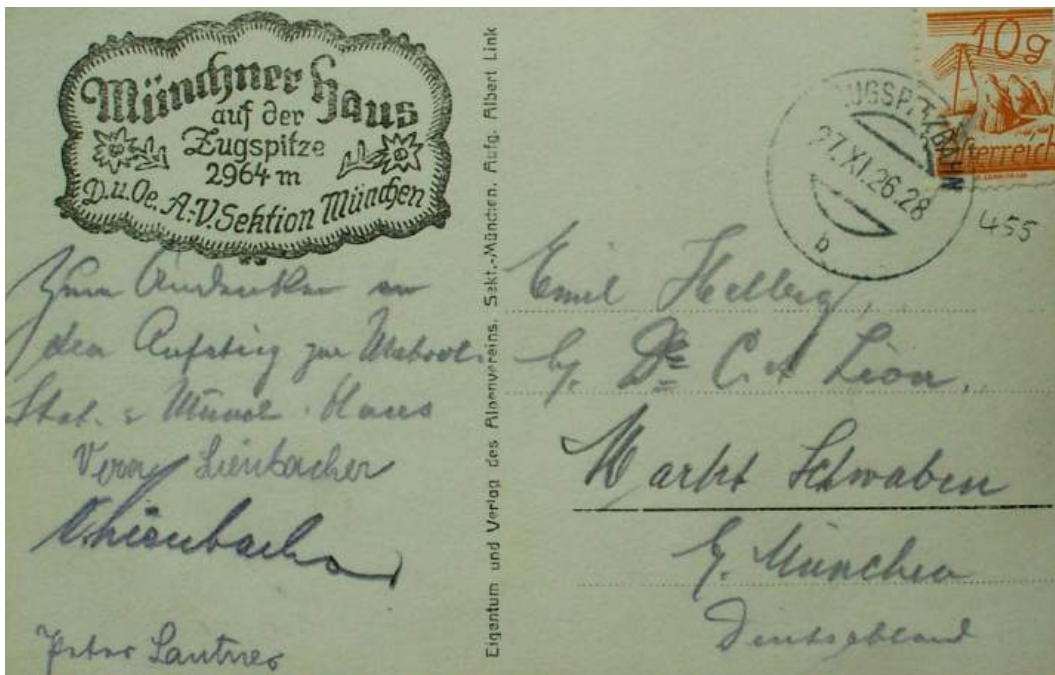 Münchner Haus
auf der
Zugspitze
2964 m
D.u.Oe. A.-V. Sektion München
Zum Andenken an
den Aufstieg zur
Stat. Haus
Lienbacher
Peter Lantner
Eigentum und Verlag des Alpenvereins, Sekt.-München. Aufg. Albert Link
10g
Österreich
ZUGSPITZBAHN
27.XI.26.28
b
455
Emil Helberg
b/. Dr. C. A. Lion.
Markt Schwaben
b/. München
Deutschland